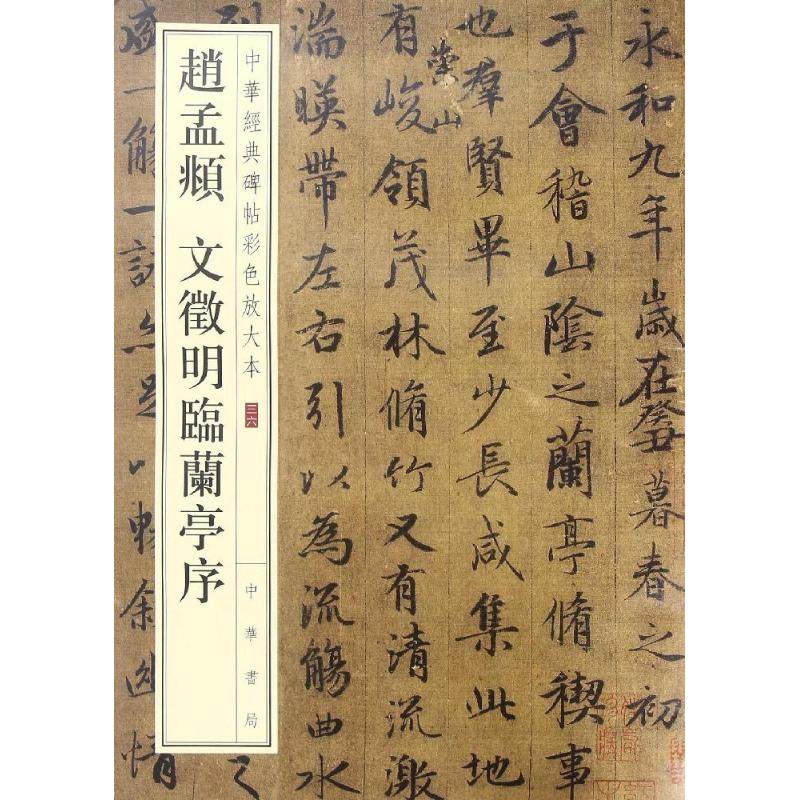 永和九年歲在癸丑暮春之初
于會稽山陰之蘭亭脩稧事
也羣賢畢至少長咸集此地
崇山
有峻領茂林脩竹又有清流激
湍暎帶左右引以為流觴曲水
中華經典碑帖彩色放大本 三六
中華書局
趙孟頫 文徵明臨蘭亭序
盛一觴一詠亦足以暢叙幽情